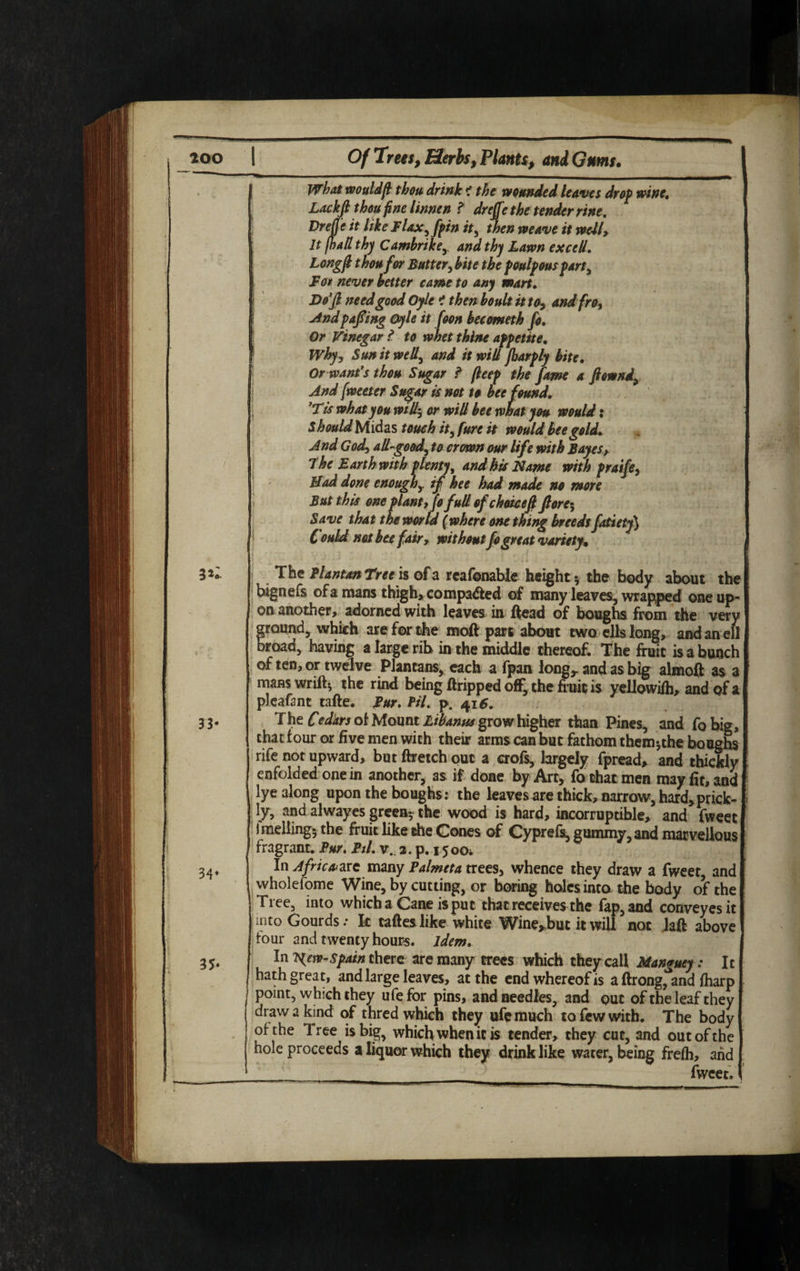 200 Of Trees, Herbs, Plants, and Gums.
What wouldſt thou drink? the wounded leaves drop wine.
Lackſt thou fine linnen? dreſſe the tender rine.
Dreſſe it like Flax, ſpin it, then weave it well,
It ſhall thy Cambrike, and thy Lawn excell.
Longſt thou for Butter, bite the poulpous part,
For never better came to any mart.
Do'ſt need good Oyle? then boult it to, and fro,
And paſſing Oyle it ſoon becometh ſo.
Or Vinegar? to whet thine appetite.
Why, Sun it well, and it will ſharply bite.
Or want's thou Sugar? ſteep the ſame a ſtownd,
And ſweeter Sugar is not to bee found.
'Tis what you will; or will bee what you would:
Should Midas touch it, ſure it would bee gold.
And God, all-good, to crown our life with Bayes,
The Earth with plenty, and his Name with praiſe,
Had done enough, if hee had made no more
But this one plant, ſo full of choiceſt ſtore;
Save that the world (where one thing breeds ſatiety)
Could not bee fair, without ſo great variety.
32. The Plantan Tree is of a reaſonable height; the body about the
bigneſs of a mans thigh, compacted of many leaves, wrapped one up-
on another, adorned with leaves in ſtead of boughs from the very
ground, which are for the moſt part about two ells long, and an ell
broad, having a large rib in the middle thereof. The fruit is a bunch
of ten, or twelve Plantans, each a ſpan long, and as big almoſt as a
mans wriſt; the rind being ſtripped off, the fruit is yellowiſh, and of a
pleaſant taſte. Pur. Pil. p. 416.
33. The Cedars of Mount Libanus grow higher than Pines, and ſo big,
that four or five men with their arms can but fathom them; the boughs
riſe not upward, but ſtretch out a croſs, largely ſpread, and thickly
enfolded one in another, as if done by Art, ſo that men may ſit, and
lye along upon the boughs: the leaves are thick, narrow, hard, prick-
ly, and alwayes green; the wood is hard, incorruptible, and ſweet
ſmelling; the fruit like the Cones of Cypreſs, gummy, and marvellous
fragrant. Pur. Pil. v. 2. p. 1500.
34. In Africa are many Palmeta trees, whence they draw a ſweet, and
wholeſome Wine, by cutting, or boring holes into the body of the
Tree, into which a Cane is put that receives the ſap, and conveyes it
into Gourds: It taſtes like white Wine, but it will not laſt above
four and twenty hours. Idem.
35. In New-Spain there are many trees which they call Manguey: It
hath great, and large leaves, at the end whereof is a ſtrong, and ſharp
point, which they uſe for pins, and needles, and out of the leaf they
draw a kind of thred which they uſe much to ſew with. The body
of the Tree is big, which when it is tender, they cut, and out of the
hole proceeds a liquor which they drink like water, being freſh, and
ſweet.